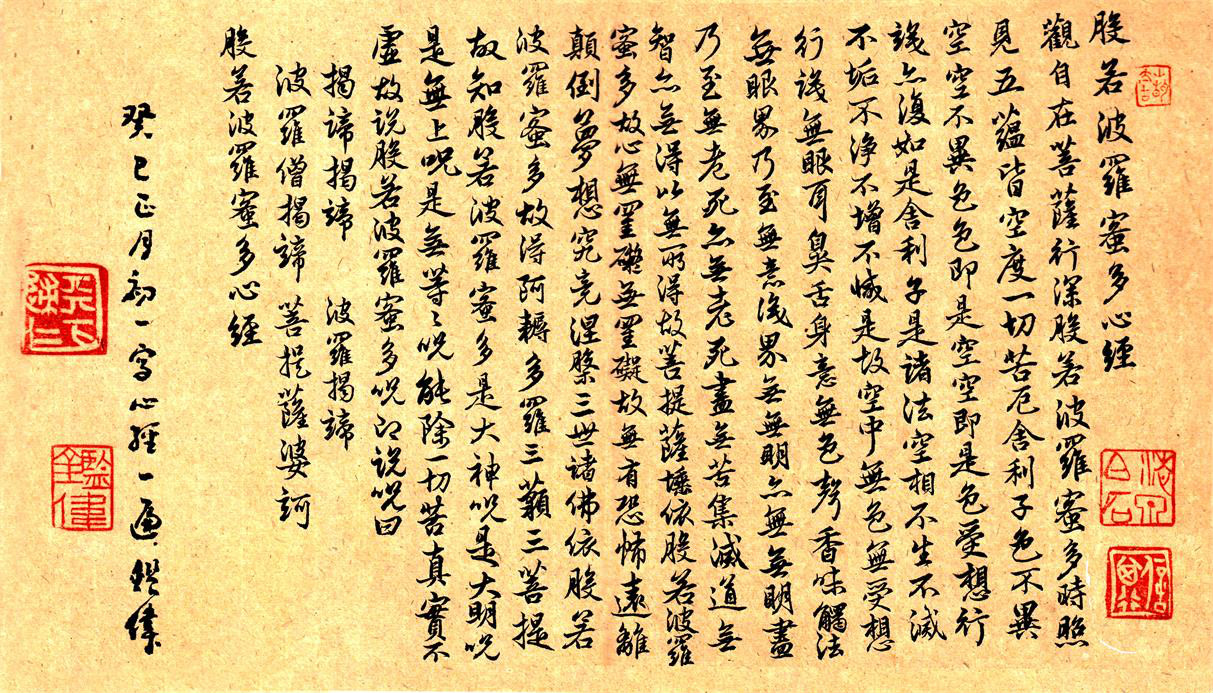 般若波羅蜜多心經
觀自在菩薩行深般若波羅蜜多時照
見五蘊皆空度一切苦厄舍利子色不異
空空不異色色即是空空即是色受想行
識亦復如是舍利子是諸法空相不生不滅
不垢不淨不增不減是故空中無色無受想
行識無眼耳鼻舌身意無色聲香味觸法
無眼界乃至無意識界無無明亦無無明盡
乃至無老死亦無老死盡無苦集滅道無
智亦無得以無所得故菩提薩埵依般若波羅
蜜多故心無罣礙無罣礙故無有恐怖遠離
顛倒夢想究竟涅槃三世諸佛依般若
波羅蜜多故得阿耨多羅三藐三菩提
故知般若波羅蜜多是大神呪是大明呪
是無上呪是無等々呪能除一切苦真實不
虛故說般若波羅蜜多呪即說呪曰
揭諦揭諦 波羅揭諦
波羅僧揭諦 菩提薩婆訶
般若波羅蜜多心經
癸巳正月初一寫心經一遍